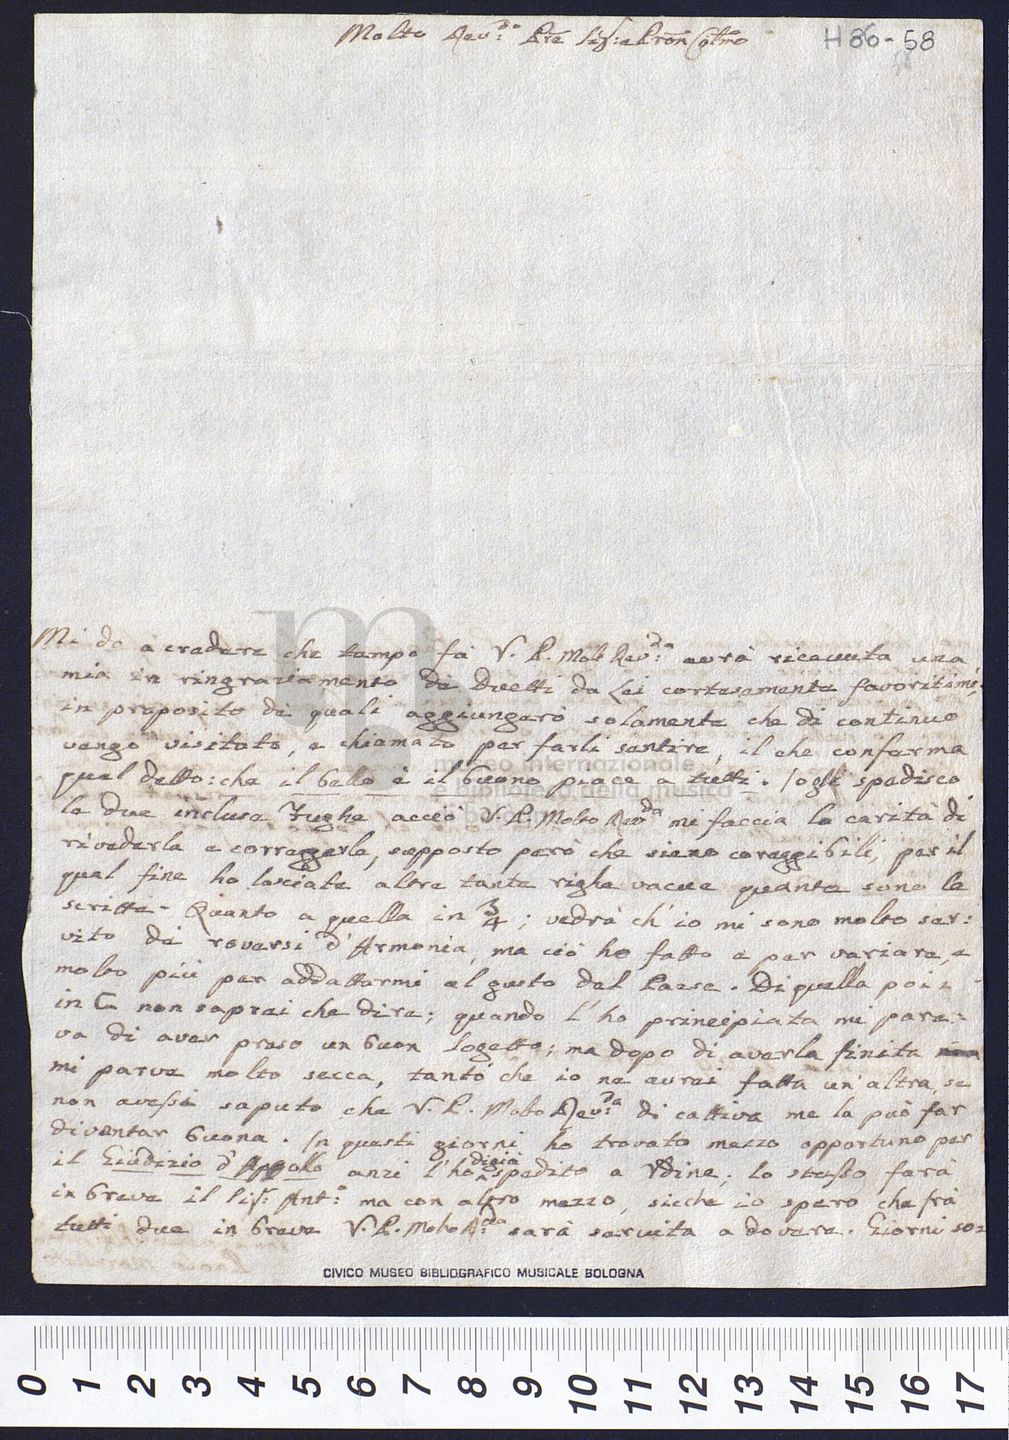 Molto Rev:da Pre Sig:e Pron Colmo
H86-58
Mi do a credere che tempo fà V. P. Molt Rev:da avrà ricevuta una
mia in ringraziamento de Duetti da Lei cortesemente favoritimi,
in proposito de quali aggiungerò solamente che di continuo
vengo visitato, e chiamato per farli sentire, il che conferma
quel detto: che il bello e il buono piace a tutti. spedisco
le due incluse Fughe acciò V. P. Molto Revda mi faccia la carità di
rivederle e correggerle, supposto però che sieno coreggibili, per il
qual fine ho lasciate altre tante righe vacue quante sono le
scritte. Quanto a quella in 3/4; vedrà ch'io mi sono molto ser:
vito de roversi d'Armonia, ma ciò ho fatto e per variare, e
molto più per addattarmi al gusto del Paese. Di quella poi
in C non saprei che dire; quando l'ho principiata mi pare:
va di aver preso un buon Sogetto; ma dopo di averla finita
mi parve molto secca, tanto che io ne avrei fatta un'altra, se
non avessi saputo che V. P. Molto Rev:da di cattiva me la può far
diventar buona. In questi giorni ho trovato mezzo opportuno per
il Giudizio d'Appollo anzi l'ho digià spedito a Udine; lo stesso farà
in breve il Sig: Ant:o ma con altro mezzo, sicche io spero che frà
tutti due in breve V. P. Molto R:da sarà servita a dovere. Giorni so:
museo internazionale
e biblioteca della musica
di bologna
CIVICO MUSEO BIBLIOGRAFICO MUSICALE BOLOGNA
0 1 2 3 4 5 6 7 8 9 10 11 12 13 14 15 16 17